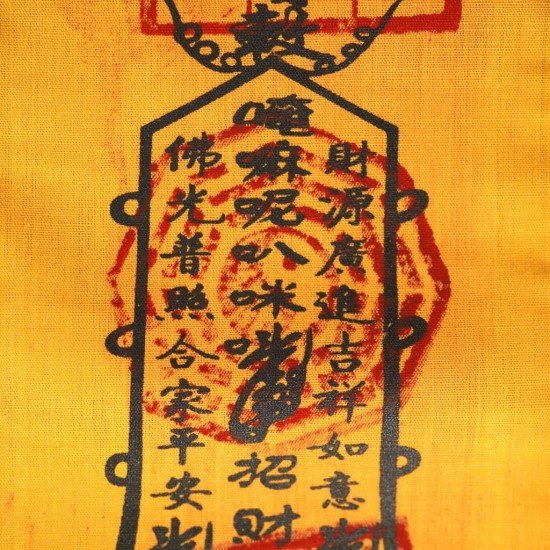 財源廣進吉祥如意
唵嘛呢叭咪吽
招財
佛光普照合家平安